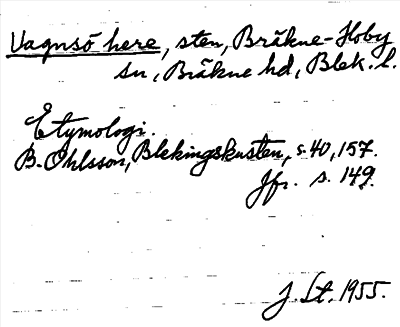 Vagnsö here, sten, Bräkne-Hoby
sn, Bräkne hd, Blek. l.
Etymologi.
B. Ohlsson, Blekingskusten, s. 40, 157.
Jfr. s. 149.
J. Lt. 1955.